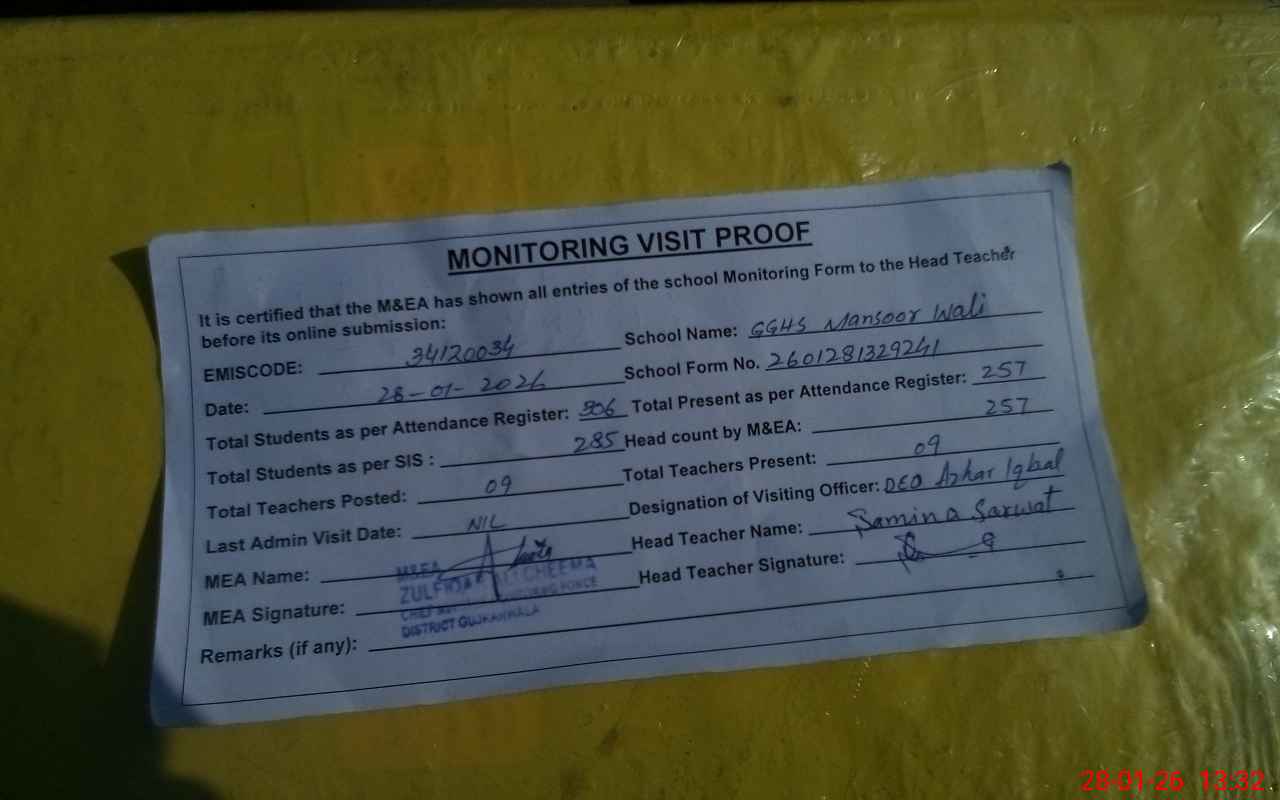 MONITORING VISIT PROOF
It is certified that the M&EA has shown all entries of the school Monitoring Form to the Head Teacher
before its online submission:
EMISCODE: 34120034 School Name: GGHS Mansoor Wali
Date: 28-01-2026 School Form No. 2601281329241
Total Students as per Attendance Register: 306 Total Present as per Attendance Register: 257
Total Students as per SIS : 285 Head count by M&EA: 257
Total Teachers Posted: 09 Total Teachers Present: 09
Last Admin Visit Date: NIL Designation of Visiting Officer: DEO Azhar Iqbal
MEA Name: Head Teacher Name: Samina Sarwat
M&EA
ZULFIQAR ALI CHEEMA
MEA Signature: Head Teacher Signature:
CHIEF MONITORING FORCE
DISTRICT GUJRANWALA
Remarks (if any):
28-01-26 13:32